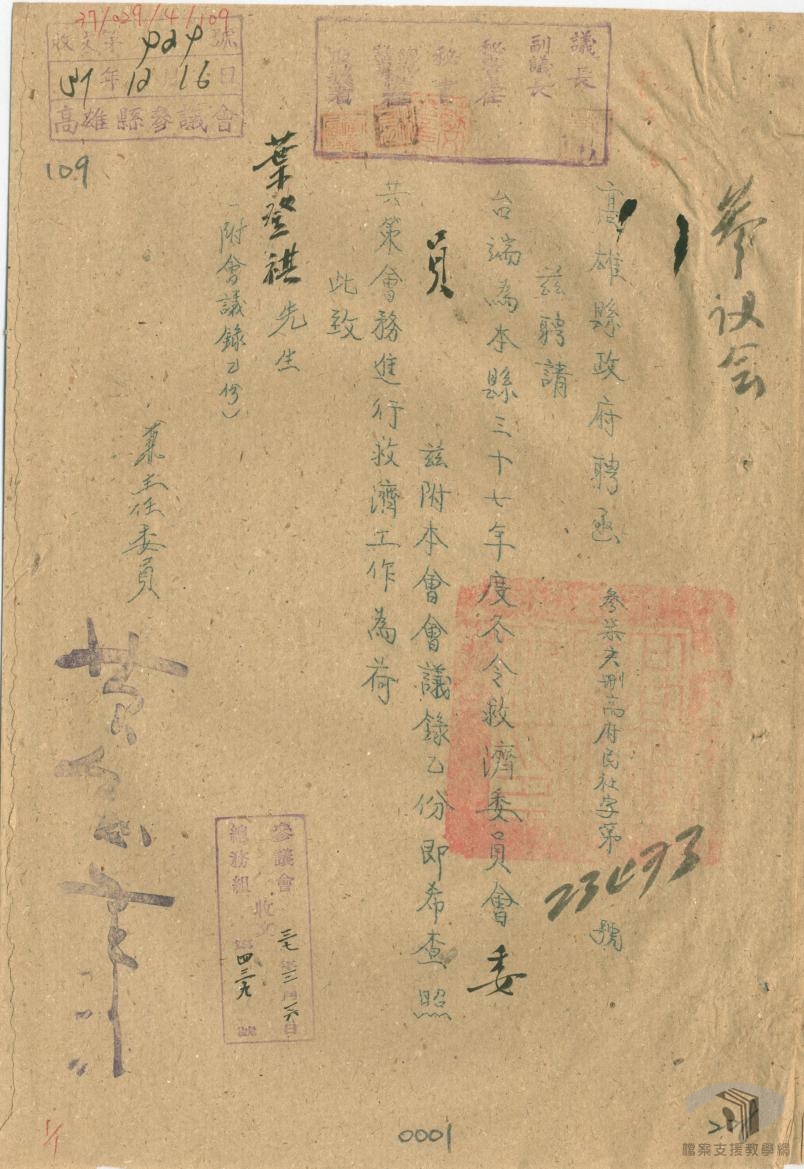 37/029/4/109
收文第424號
37年12月16日
高雄縣參議會
109
議長
副議長
秘書
參议会
高雄縣政府聘函
參柒亥刪高府民社字第23493號
茲聘請
台端為本縣三十七年度冬令救濟委員會委
員
茲附本會會議錄乙份即希查照
共策會務進行救濟工作為荷
此致
葉登祺先生
(附會議錄乙份)
兼主任委員
參議會
總務組
收文
三七年三月六日
第四三九號
0001
1/1
檔案支援教學網